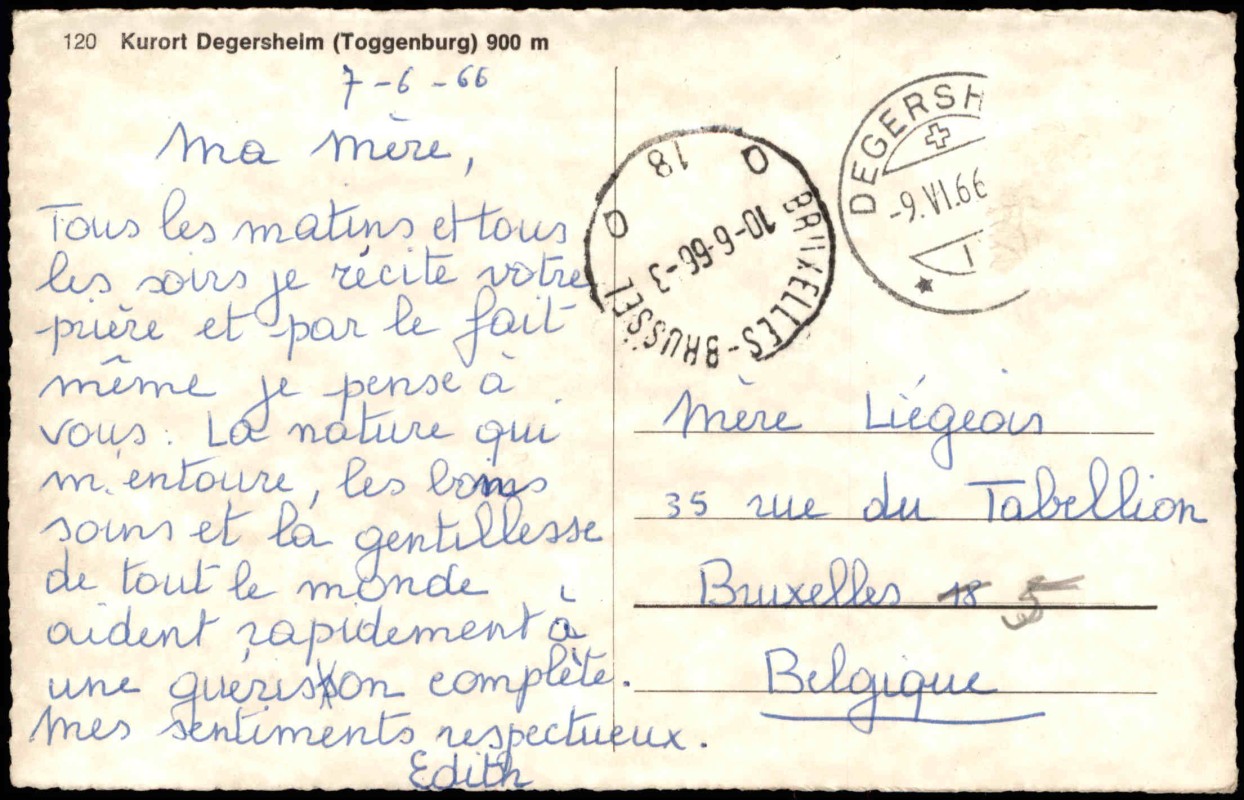 120 Kurort Degersheim (Toggenburg) 900 m
7-6-66
Ma Mère,
Tous les matins et tous
les soirs je récite votre
prière et par le fait
même je pense à
vous. La nature qui
m'entoure, les bons
soins et la gentillesse
de tout le monde
aident rapidement à
une guérison complète.
Mes sentiments respectueux.
Edith
18
BRUXELLES-BRUSSEL
10-6-66-3
DEGERSH
-9.VI.66
Mère Liégeois
35 rue du Tabellion
Bruxelles 18 5
Belgique